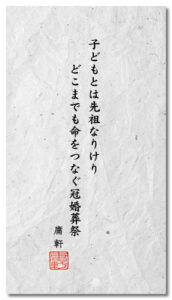 子どもとは先祖なりけり
どこまでも命をつなぐ冠婚葬祭
庸軒